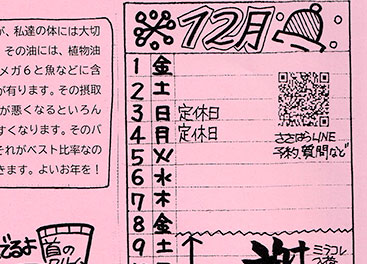 が、私達の体には大切
その油には、植物油
メガ６と魚などに含
が有ります。その摂取
が悪くなるといろん
すくなります。そのバ
それがベスト比率なの
きます。よいお年を！
12月
1 金
2 土
3 日 定休日
4 月 定休日
5 火
6 水
7 木
8 金
9 土
ささはらLINE
予約、質問など
でるよ
首の
ミラコレ